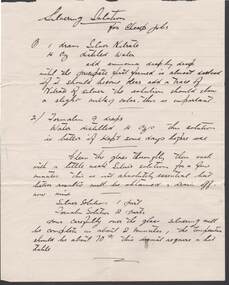 Silvering Solution
for Cheap jobs
1) 1 dram Silver Nitrate
10 oz distilled Water
add ammonia drop by drop
until the precipitate first formed is almost dissolved
If it should become clear add a trace of
Nitrate of silver. The solution should show
a slight milky color. This is important
2/ Formalin 9 drops
Water distilled 10 ozs. This solution
is better if kept some days before use
Clean the glass thoroughly, then wash
with a little weak silver solution for a few
minutes. This is not absolutely essential but
better results will be obtained, drain off
now mix
Silver Solution 1 part
Formalin Solution 2 parts
pour carefully over the glass. Silvering will
be complete in about 2 minutes, the temperature
should be about 70°. This requires a hot
table